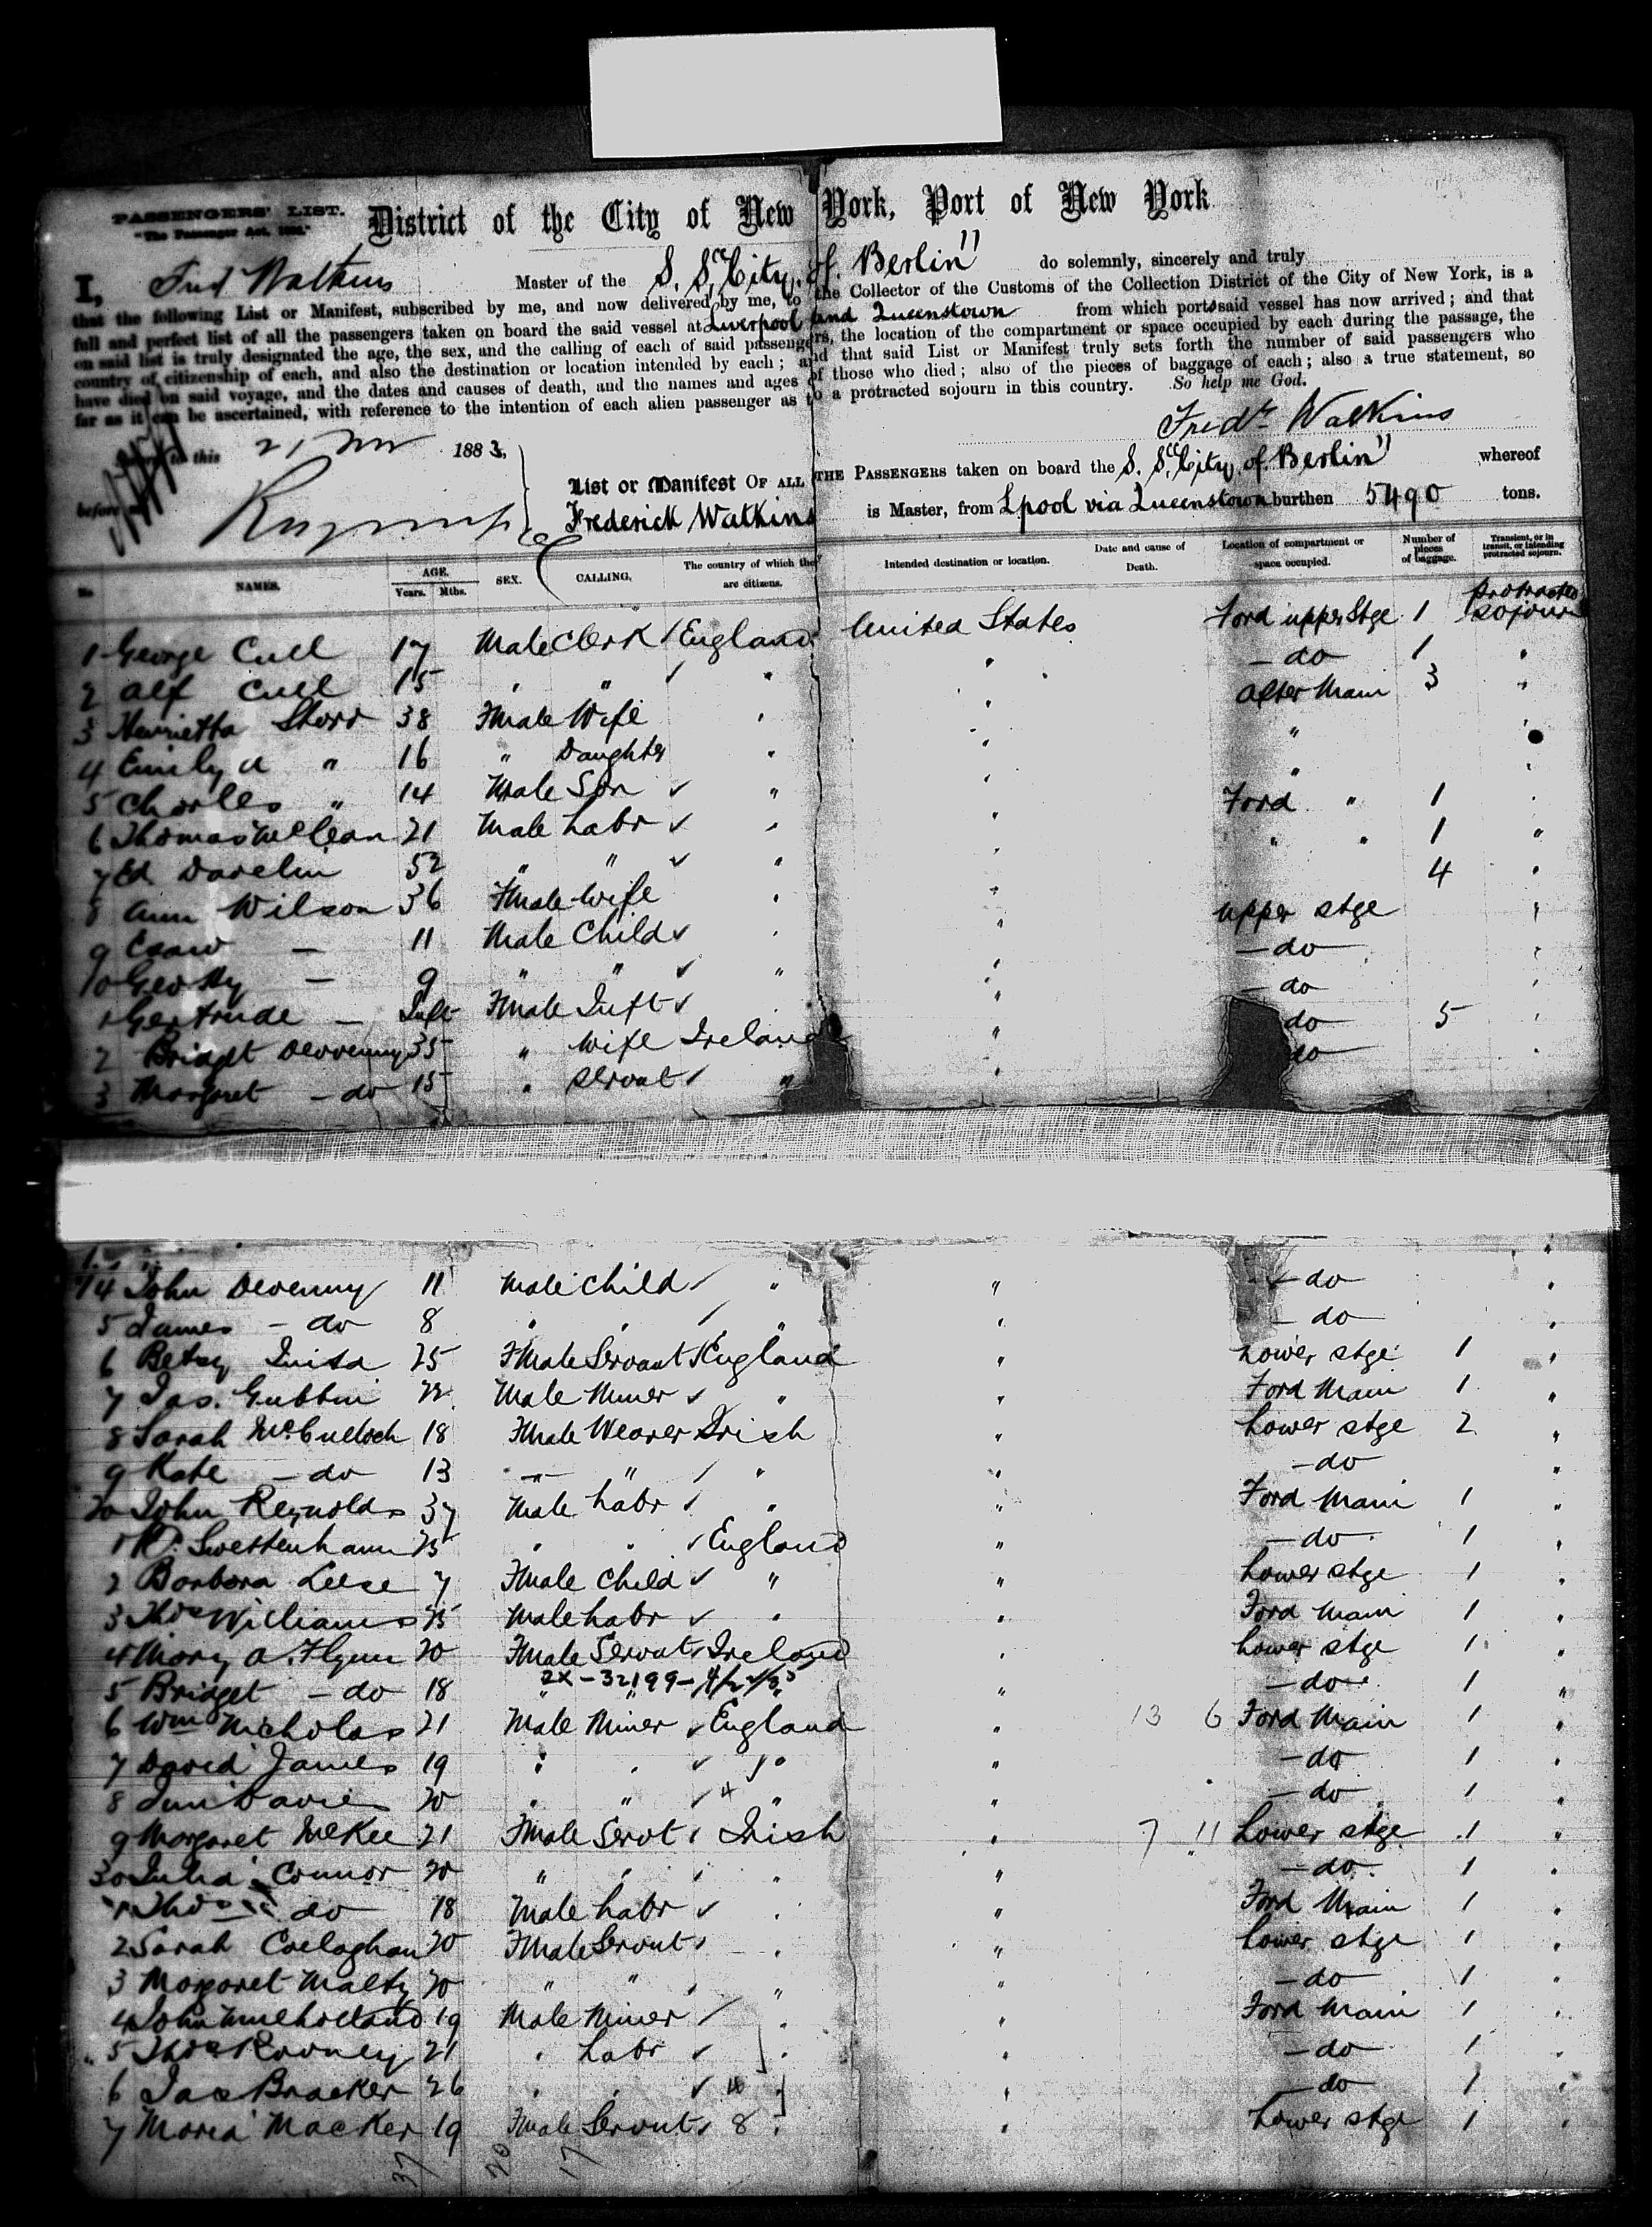 PASSENGERS' LIST.
"The Passenger Act,
District of the City of New York, Port of New York
I, Fred Watkins Master of the S. S. "City of Berlin" do solemnly, sincerely and truly
that the following List or Manifest, subscribed by me, and now delivered by me, to the Collector of the Customs of the Collection District of the City of New York, is a
full and perfect list of all the passengers taken on board the said vessel at Liverpool and Queenstown from which ports said vessel has now arrived; and that
on said list is truly designated the age, the sex, and the calling of each of said passengers, the location of the compartment or space occupied by each during the passage, the
country of citizenship of each, and also the destination or location intended by each; and that said List or Manifest truly sets forth the number of said passengers who
have died on said voyage, and the dates and causes of death, and the names and ages of those who died; also of the pieces of baggage of each; also a true statement, so
far as it can be ascertained, with reference to the intention of each alien passenger as to a protracted sojourn in this country. So help me God.
Fredk Watkins
to this 21 Nov 1883,
before
List or Manifest OF ALL THE PASSENGERS taken on board the S. S. "City of Berlin" whereof
Frederick Watkins is Master, from Lpool via Queenstown burthen 5490 tons.
No NAMES. AGE. Years. Mths. SEX. CALLING. The country of which they are citizens. Intended destination or location. Date and cause of Death. Location of compartment or space occupied. Number of pieces of baggage. Transient, or in transit, or intending protracted sojourn.
1 George Cull 17 Male Clerk England United States Ford upper Stge 1 protracted sojourn
2 Alf Cull 15 " " " " - do 1 "
3 Henrietta Storr 38 Fmale Wife " " After Main 3 "
4 Emily A " 16 " Daughter " " " "
5 Charles " 14 Male Son " " " "
6 Thomas McClean 21 Male Labr " " Ford " 1 "
7 Ed 52 " " " " " " 1 "
8 Ann Wilson 36 Fmale Wife " " upper stge 4 "
9 - 11 Male Child " " - do "
10 Geo Hy - 9 " " " " - do "
1 Gertrude - Inft Fmale Inft " " do "
2 Bridget Devenny 35 " Wife Ireland " do 5 "
3 Margaret - do 15 " Servant " " do "
14 John Devenny 11 Male Child " " - do "
5 James - do 8 " " " " - do "
6 Betsy 25 Fmale Servant England " Lower stge 1 "
7 Jas. Gubbin 22 Male Miner " " Ford Main 1 "
8 Sarah McCulloch 18 Fmale Weaver Irish " Lower stge 2 "
9 Kate - do 13 " " " " - do "
20 John Reynolds 37 Male Labr " " Ford Main 1 "
1 R. Swettenham 25 " " England " - do 1 "
2 Barbara Leese 7 Fmale Child " " Lower stge 1 "
3 Thos Williams 25 Male Labr " " Ford Main 1 "
4 Mary O. Flynn 20 Fmale Servat Ireland " Lower stge 1 "
2X-32199-
5 Bridget - do 18 " " " " - do 1 "
6 Wm Nicholas 21 Male Miner England " 13 6 Ford Main 1 "
7 David James 19 " " " " - do 1 "
8 Davies 20 " " " " - do 1 "
9 Margaret McKee 21 Fmale Servt Irish " 7 11 Lower stge 1 "
30 Julia Connor 20 " " " " - do 1 "
1 Thos do 18 Male Labr " " Ford Main 1 "
2 Sarah Callaghan 20 Fmale Servnt " " Lower stge 1 "
3 Margaret Malty 20 " " " " - do 1 "
4 John Mulholland 19 Male Miner " " Ford Main 1 "
5 Thos Rooney 21 " Labr " " - do 1 "
6 Jas Bracker 26 " " " " - do 1 "
7 Maria Macker 19 Fmale Servnt 8 " " Lower stge 1 "
37 20 17